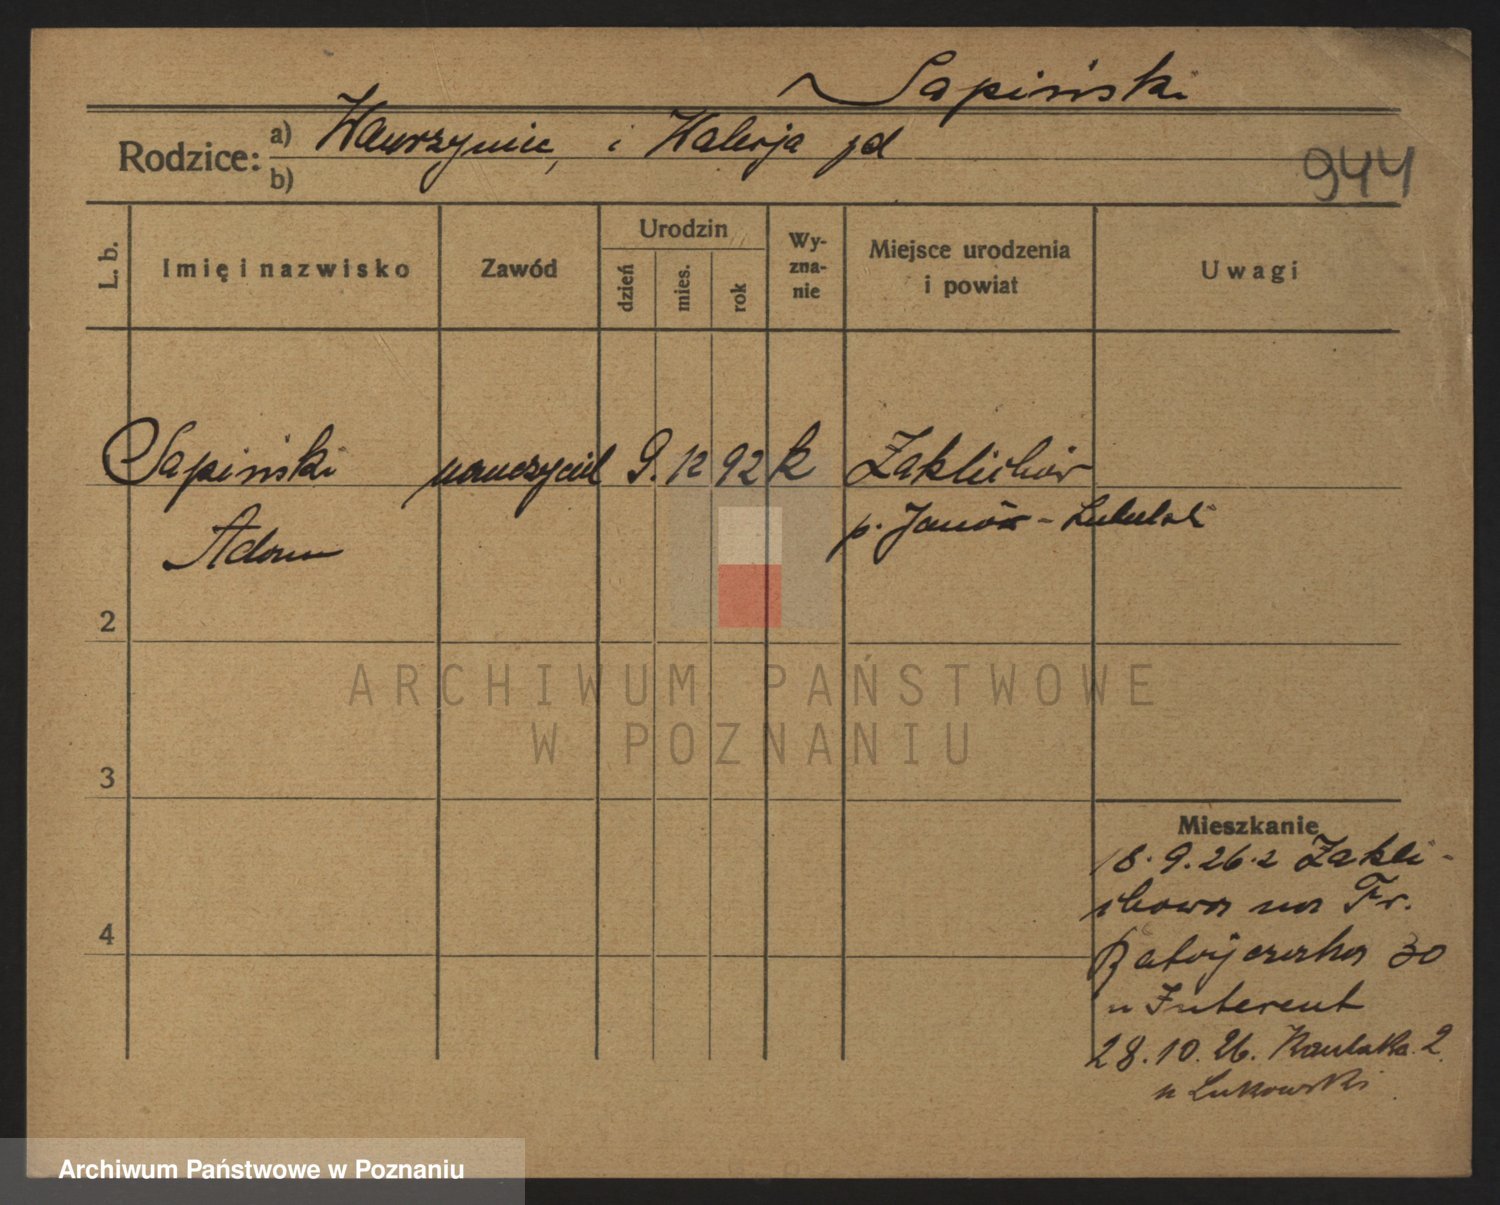 Sapiński
Rodzice: a) Wawrzyniec, i Walerja jd
b)
944
L. b.
Imię i nazwisko
Zawód
Urodzin
dzień
mies.
rok
Wy-
zna-
nie
Miejsce urodzenia
i powiat
Uwagi
Sapiński nauczyciel 9. 12 92 k Zaklików
Adam p. Janów-Lubelski
2
3
4
ARCHIWUM PAŃSTWOWE
W POZNANIU
Mieszkanie
18.9.26. z Zakli-
kowa na Fr.
Ratajczaka 30
u
28.10.26. 2
u Lukowski
Archiwum Państwowe w Poznaniu